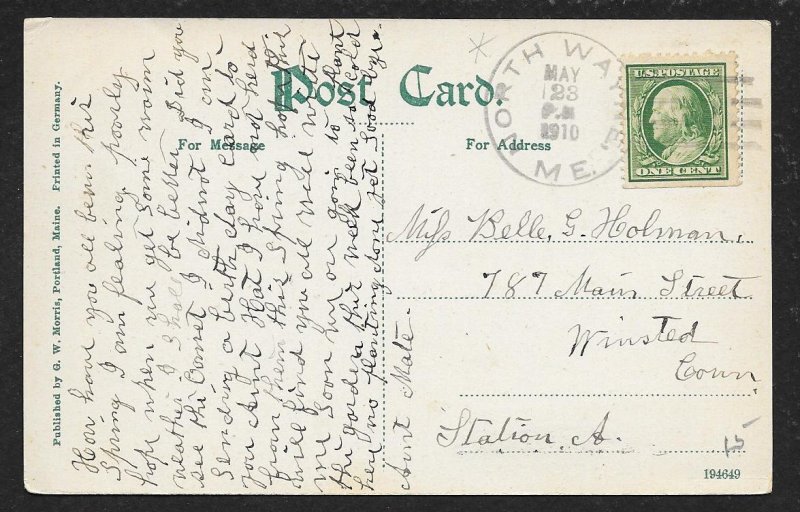 Post Card.
For Message
For Address
Published by G. W. Morris, Portland, Maine. Printed in Germany.
NORTH WAYNE
MAY
23
P.M
1910
ME.
U.S. POSTAGE
ONE CENT
How have you all been this
Spring I am fealing poorly
hope when we get some warm
weather I shall be better Did you
see the Comet I did not I am
Sending a birth day Card to
you Aunt Hat I have not herd
from them this Spring hope this
will find you all well write
me soon we are going to plant
the garden this week been so cold
here no planting done yet Good by
Aunt Mate.
Miss Belle, G. Holman,
787 Main Street
Winsted
Conn
Station A.
15
194649